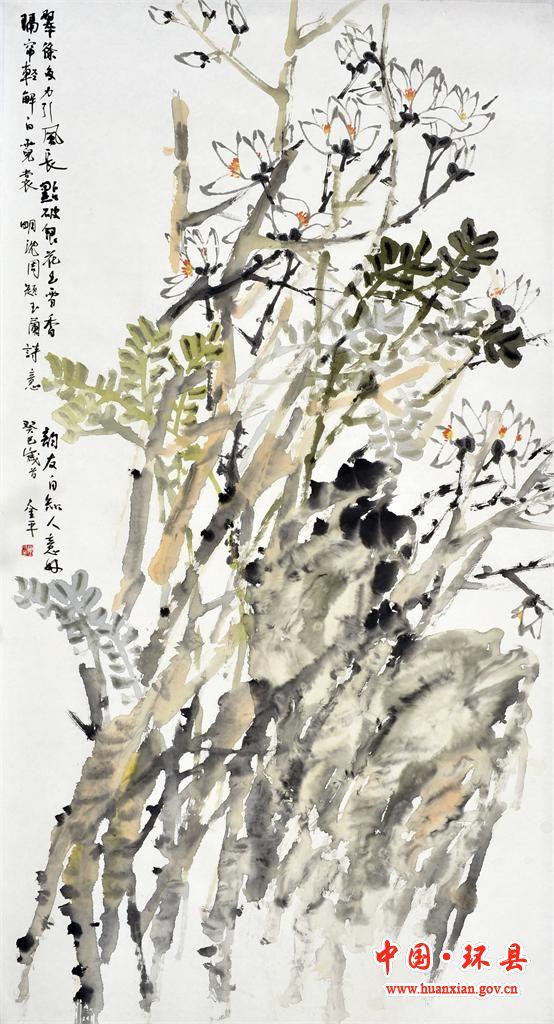 翠條多力引風長 點破銀花玉雪香 韵友自知人意好
隔帘輕解白霓裳 明沈周題玉蘭詩意 癸巳歲首 金平
中国·环县
www.huanxian.gov.cn